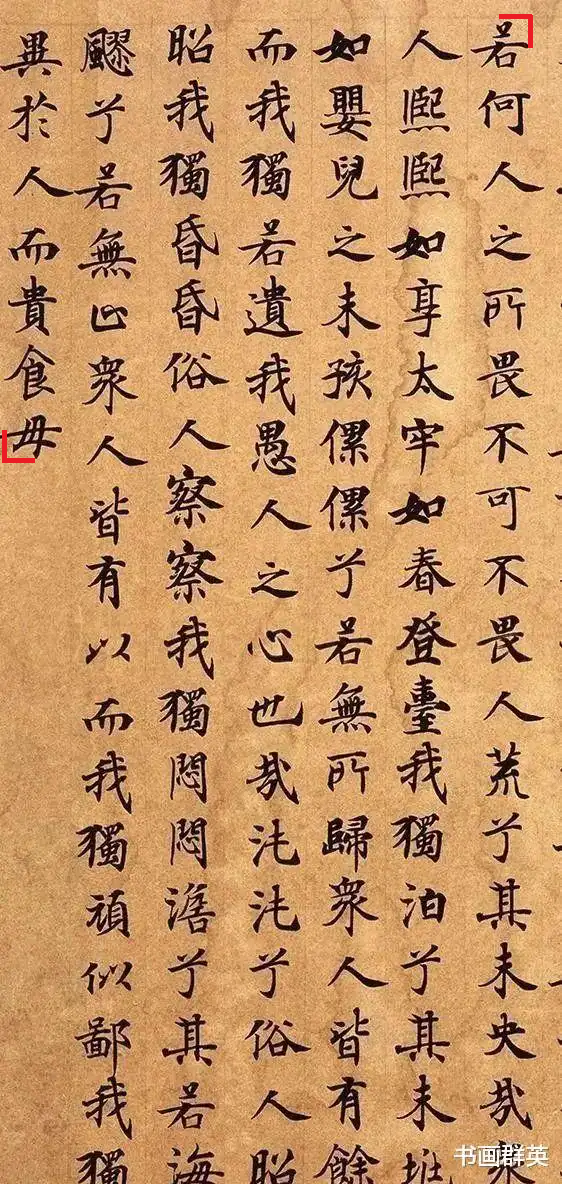 若何人之所畏不可不畏人荒兮其未央哉衆
人熙熙如享太牢如春登臺我獨泊兮其未
如嬰兒之未孩傫傫兮若無所歸衆人皆有餘
而我獨若遺我愚人之心也哉沌沌兮俗人昭
昭我獨昏昏俗人察察我獨悶悶澹兮其若海
飂兮若無止衆人皆有以而我獨頑似鄙我獨
異於人而貴食母
书画群英